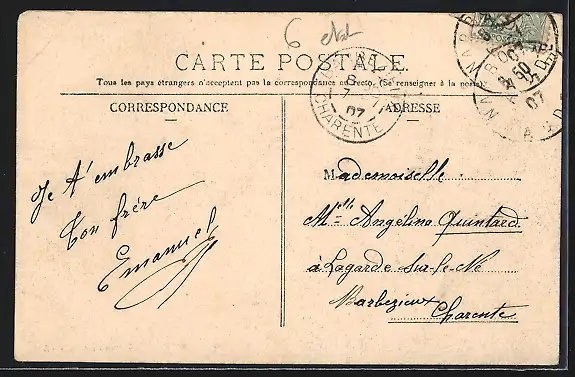 6 
CARTE POSTALE.
Tous les pays étrangers n'acceptent pas la correspondance au recto. (Se renseigner à la poste).
CORRESPONDANCE
ADRESSE
CHARENTE
07
Je t'embrasse
Ton frère
Emanuel
Mademoiselle
Mlle Angélina Quintard.
à Lagarde-sur-le-Né
Barbezieux
Charente